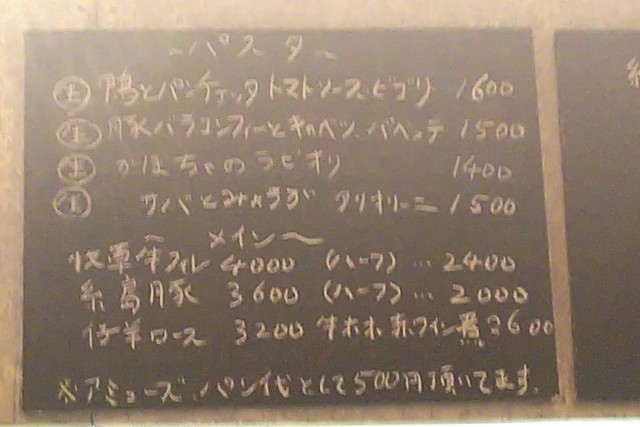 〜パスタ〜
生 鴨とパンチェッタ トマトソース、ビゴリ 1600
生 豚バラコンフィーとキャベツ、バベッテ 1500
生 かぼちゃのラビオリ 1400
生 サバとみょうが タリオリーニ 1500
〜メイン〜
牧草牛フィレ 4000 (ハーフ)…2400
糸島豚 3600 (ハーフ)…2000
仔羊ロース 3200 牛ホホ赤ワイン煮 2600
※アミューズ、パン代として500円頂いてます。